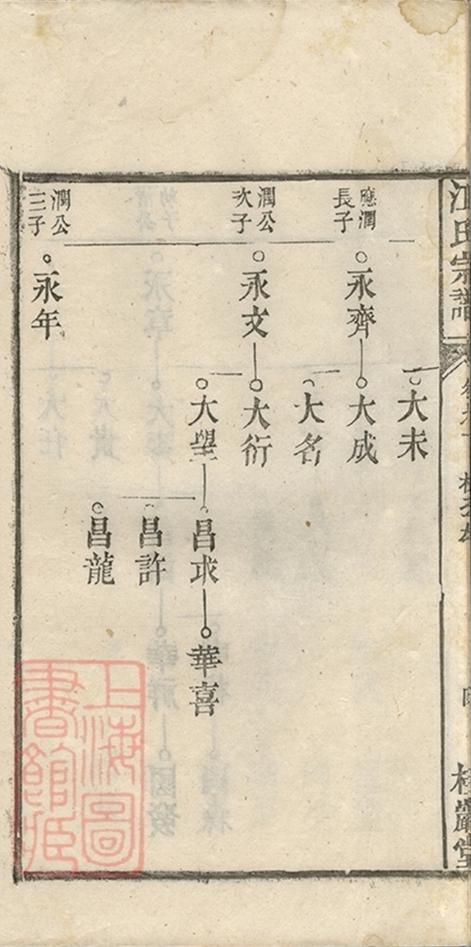 江氏宗譜
大未
應潤
長子
永齊
大成
大名
潤公
次子
永文
大衍
大望
昌求
華喜
昌許
昌龍
潤公
三子
永年
上海圖
書館藏